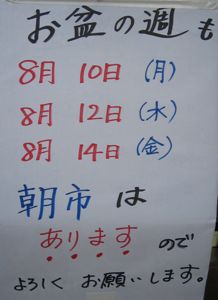 お盆の週も
8月 10日 (月)
8月 12日 (水)
8月 14日 (金)
朝市は
ありますので
よろしく お願いします。